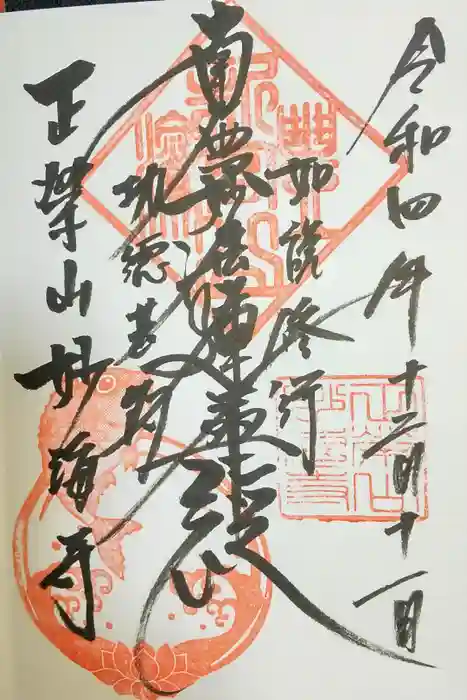 令和四年十二月十一日
如説修行
南無妙法蓮華経
功徳甚多
正榮山妙海寺